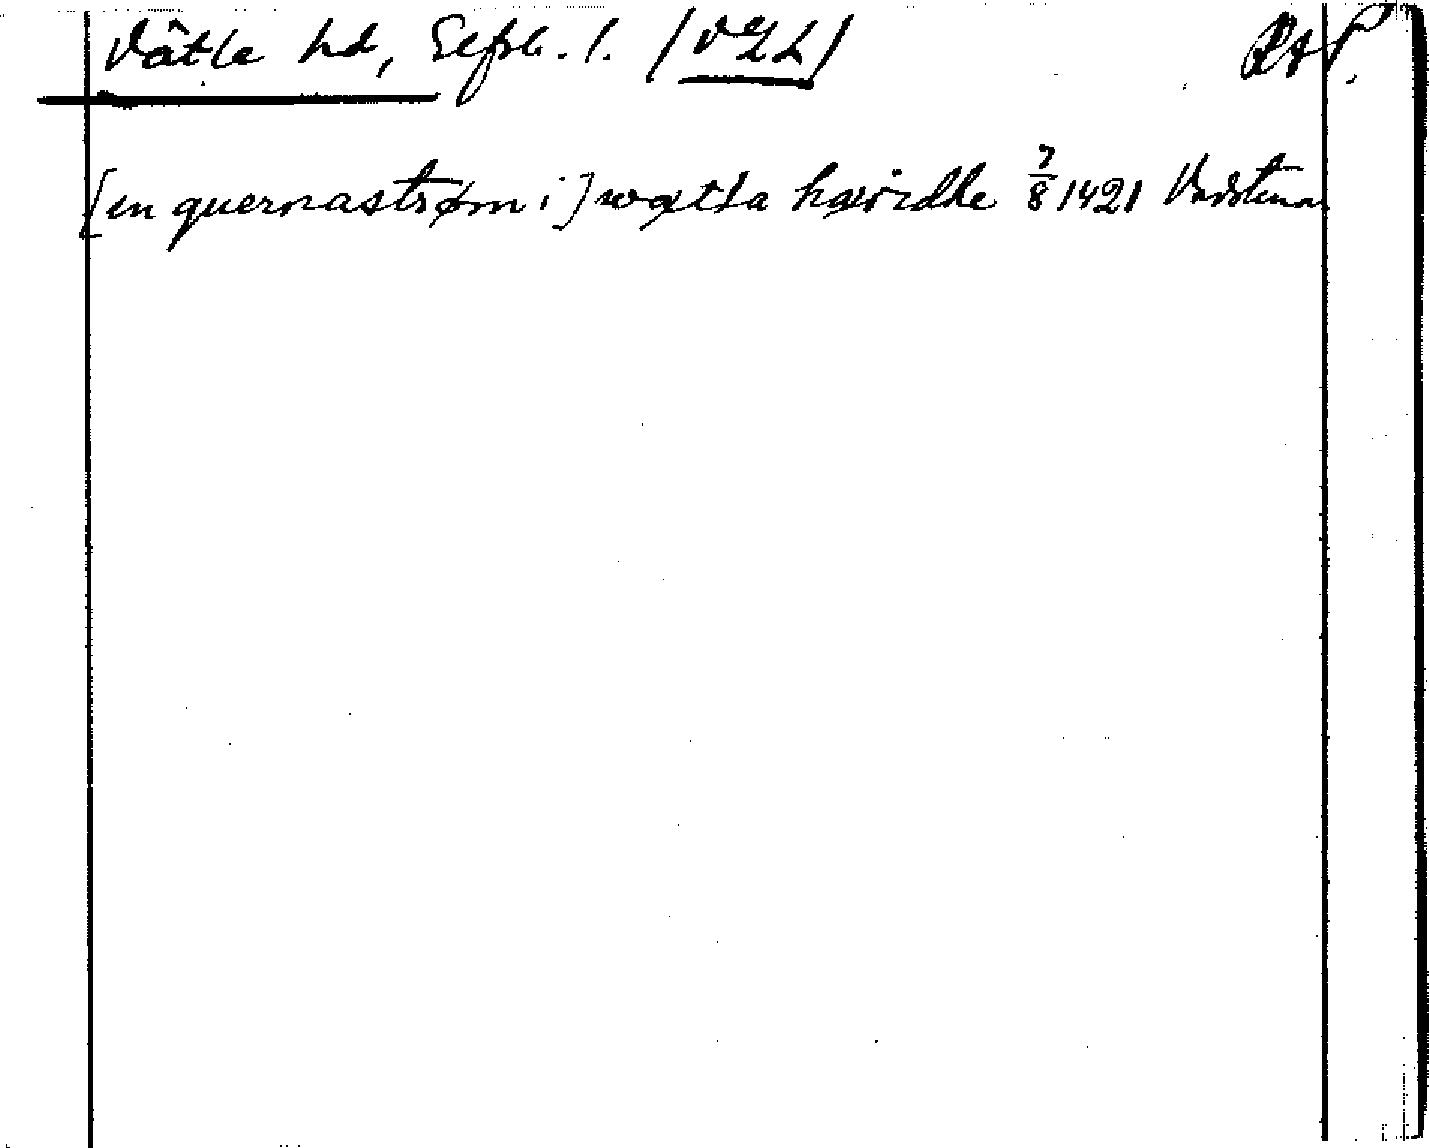 Vätle hd, Älfsb. l. (VGL) RAP.
[en quernastrøm i] wætla hæridhe 7/8 1421 Vadstena